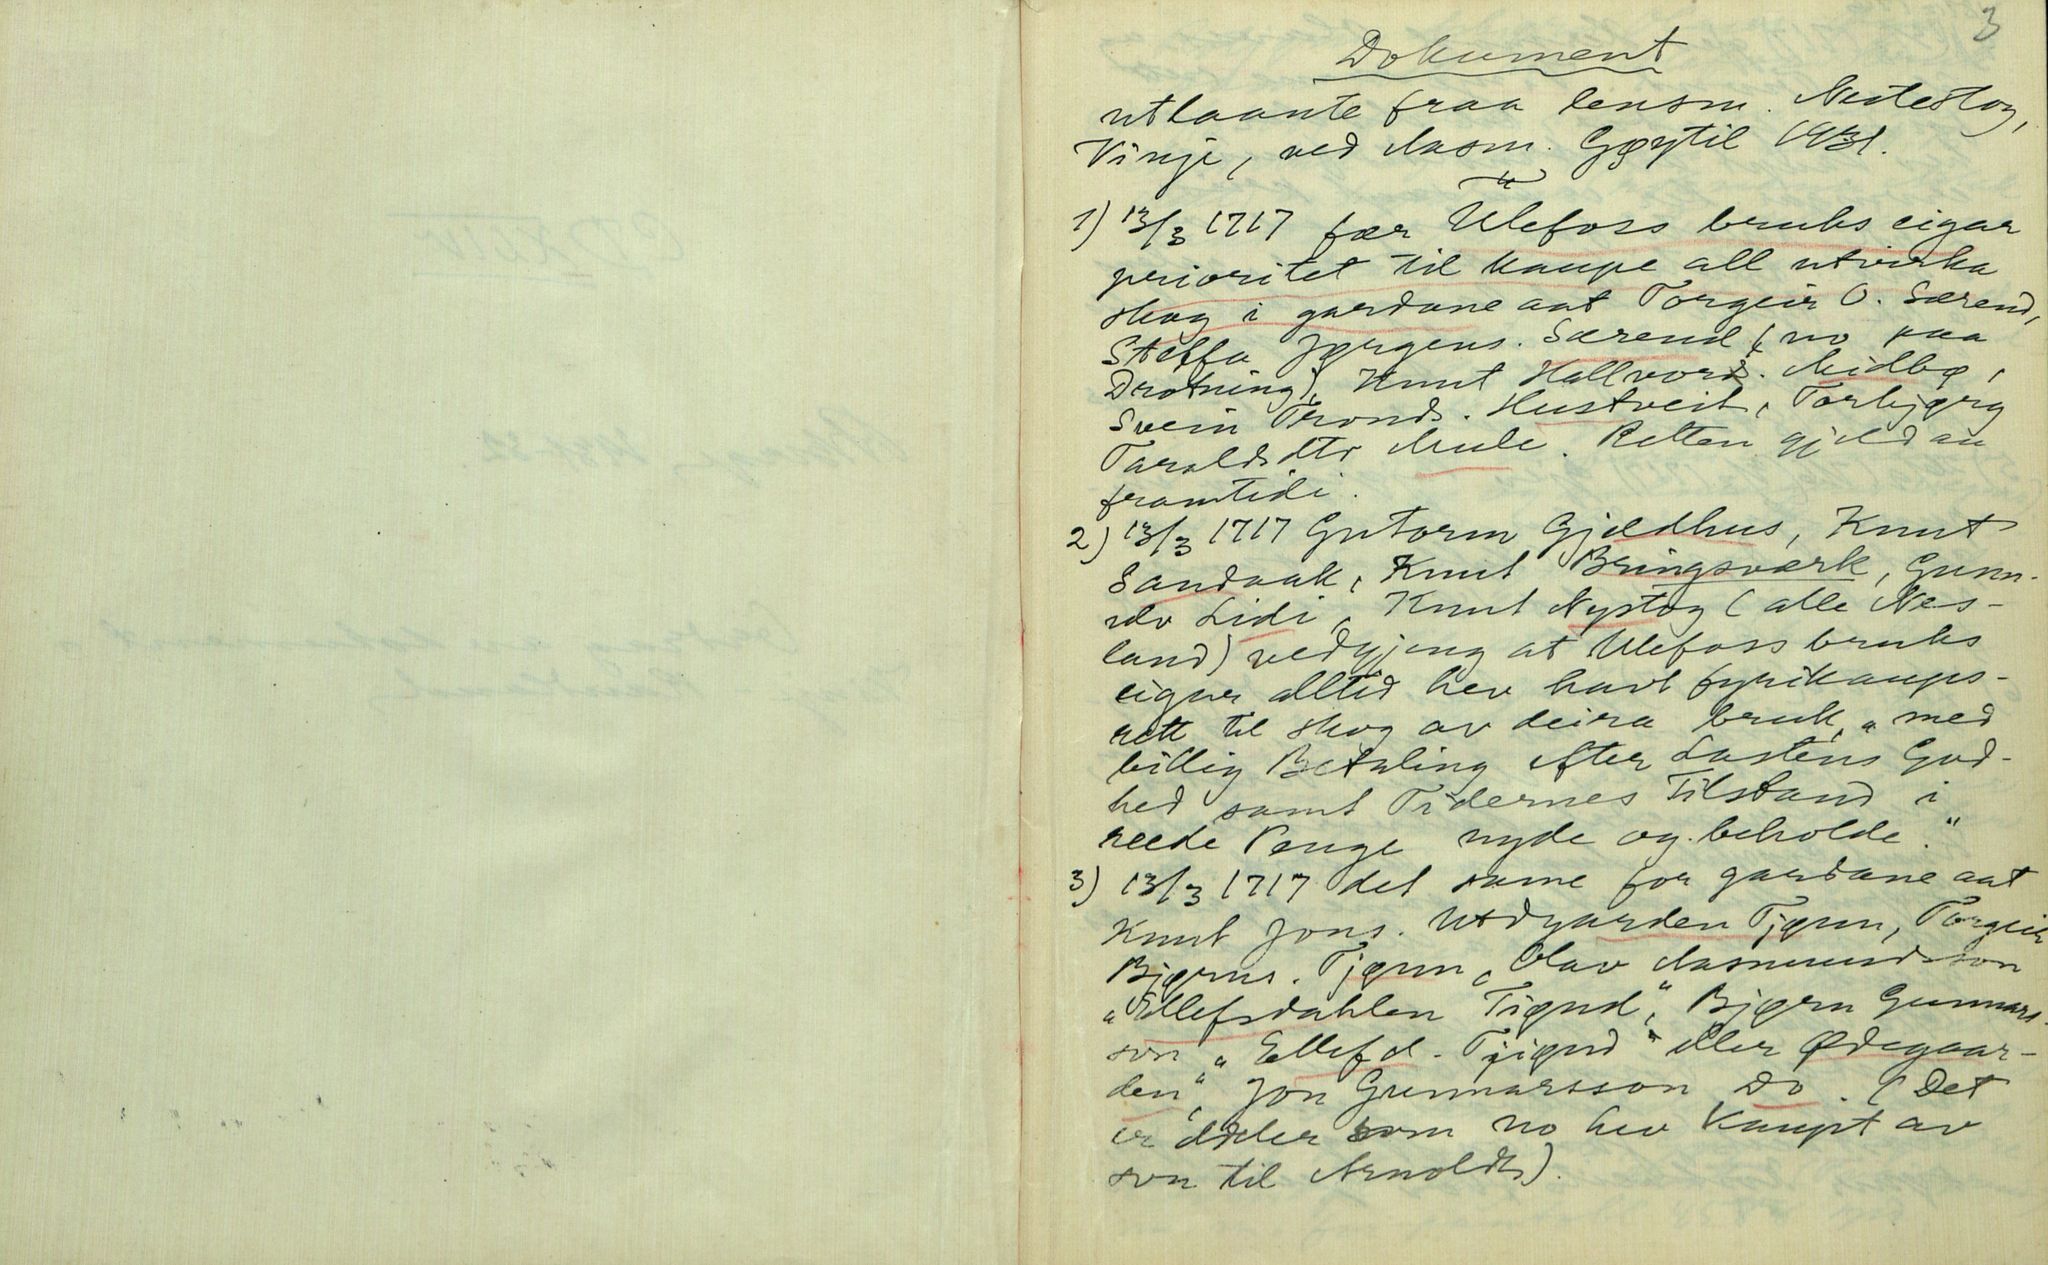 3
Dokument
utlaante fraa lensm. Nestestog,
Vinje, ved Aasm. Gøytil 1931.
1) 13/3 1717 fær Ulefoss bruks eigar
prioritet til kaupe all utvirka
skog i gardane aat Torgeir O. Særend,
Steffa Jørgens. Særend (no paa
Drotning), Knut Hallvords. Midbø,
Svein Tronds. Hustveit, Torbjørg
Taraldsdtr Mule. Retten gjeld au
framtidi.
2) 13/3 1717 Gutorm Gjeldhus, Knut
Sandaak, Knut Bringsværk, Gunn-
ulv Lidi, Knut Nystog (alle Nes-
land) vedgjeng at Ulefoss bruks
eigar alltid hev havt fyrikaups-
rett til skog av deira bruk, „med
billig Betaling efter Lastens God-
hed samt Tidernes Tilstand i
reede Penge nyde og beholde."
3) 13/3 1717 det same for gardane aat
Knut Jons. Utdgarden Tjønn, Torgeir
Bjørns. Tjønn, Olav Aasmundsson
„Ellefsdahlen Tiønd", Bjørn Gunnars-
son „Ellefd. Tjiønd" eller Ødegaar-
den", Jon Gunnarsson Do. (Det
er deler som no hev kaupt av
son til Arnoldts).